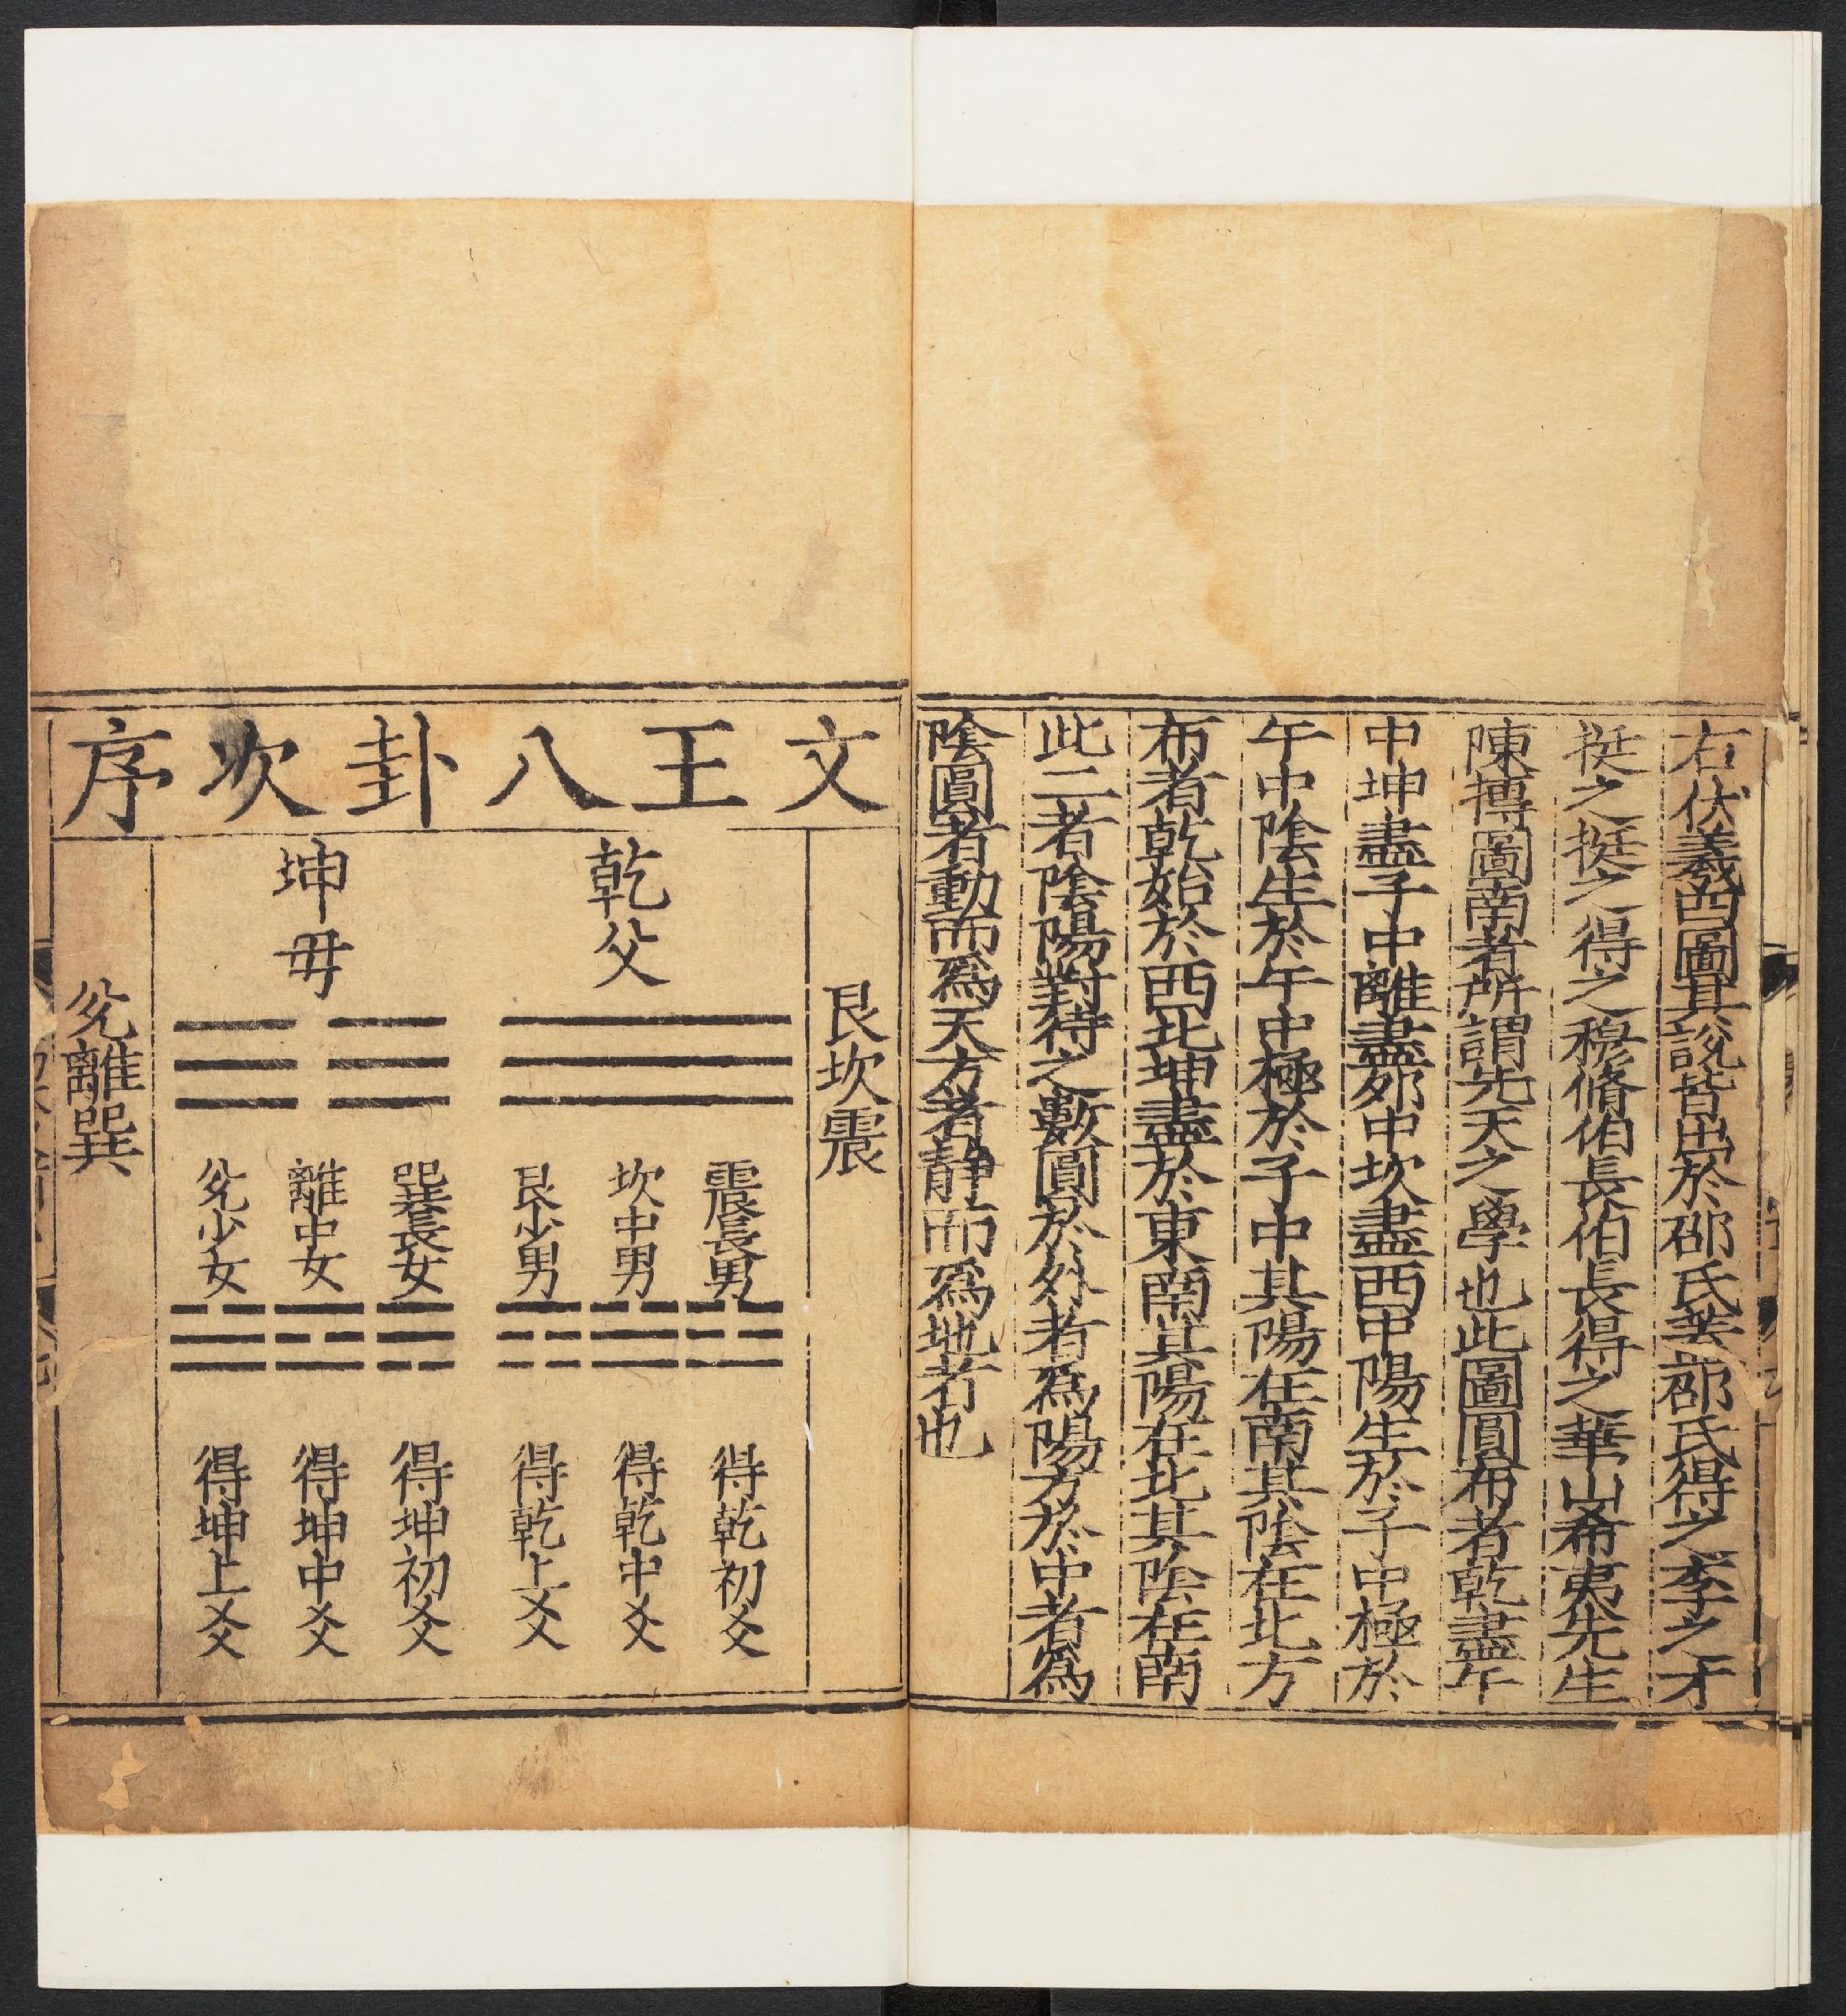 右伏羲四圖其說皆出於邵氏葢邵氏得之李之才
挺之挺之得之穆脩伯長伯長得之華山希夷先生
陳摶圖南者所謂先天之學也此圖圓布者乾盡午
中坤盡子中離盡夘中坎盡酉中陽生於子中極於
午中陰生於午中極於子中其陽在南其陰在北方
布者乾始於西北坤盡於東南其陽在北其陰在南
此二者陰陽對待之數圓於外者爲陽方於中者爲
陰圓者動而爲天方者靜而爲地者也
文王八卦次序
艮坎震
乾父
坤毋
震長男
坎中男
艮少男
巽長女
離中女
兊少女
得乾初爻
得乾中爻
得乾上爻
得坤初爻
得坤中爻
得坤上爻
兊離巽